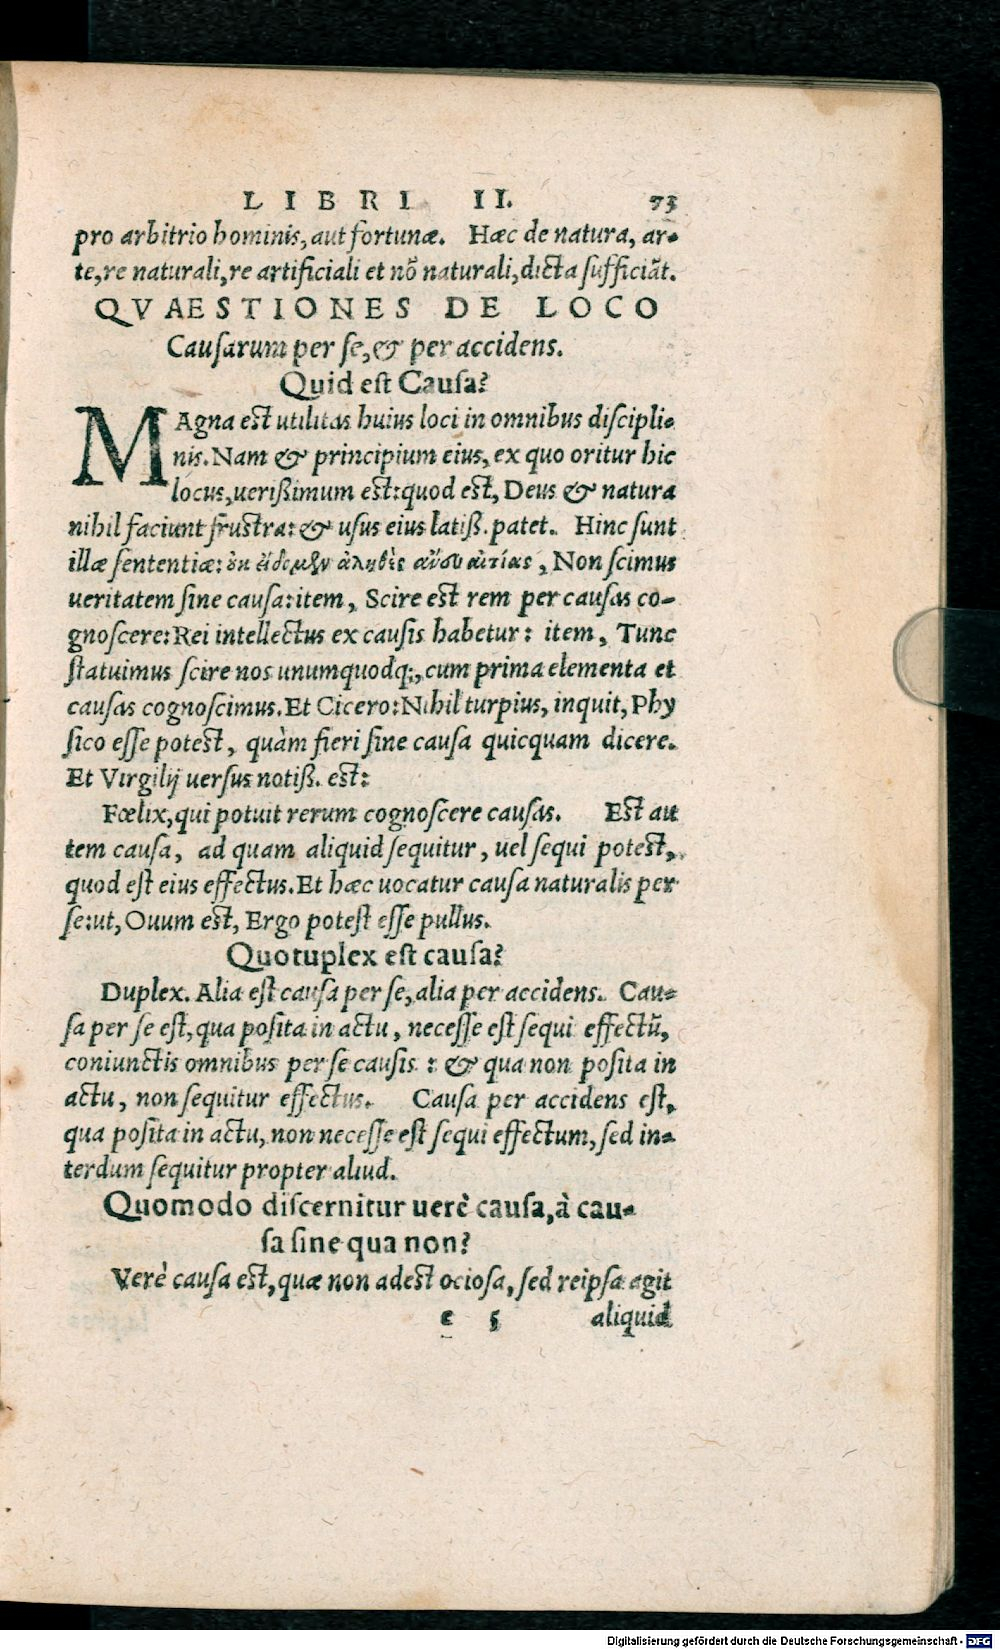 LIBRI II. 73
pro arbitrio hominis, aut fortunæ. Hæc de natura, ar-
te, re naturali, re artificiali et nõ naturali, dicta sufficiãt.
QVAESTIONES DE LOCO
Causarum per se, & per accidens.
Quid est Causa?
MAgna est utilitas huius loci in omnibus discipli-
nis. Nam & principium eius, ex quo oritur hic
locus, uerißimum est: quod est, Deus & natura
nihil faciunt frustra: & usus eius latiß. patet. Hinc sunt
illæ sententiæ: οὐκ εἴδομεν ἀληθὲς ἄνευ αἰτίας, Non scimus
ueritatem sine causa: item, Scire est rem per causas co-
gnoscere: Rei intellectus ex causis habetur: item, Tunc
statuimus scire nos unumquodq;, cum prima elementa et
causas cognoscimus. Et Cicero: Nihil turpius, inquit, Phy
sico esse potest, quàm fieri sine causa quicquam dicere.
Et Virgilij uersus notiß. est:
Fœlix, qui potuit rerum cognoscere causas. Est au
tem causa, ad quam aliquid sequitur, uel sequi potest,
quod est eius effectus. Et hæc uocatur causa naturalis per
se: ut, Ouum est, Ergo potest esse pullus.
Quotuplex est causa?
Duplex. Alia est causa per se, alia per accidens. Cau-
sa per se est, qua posita in actu, necesse est sequi effectũ,
coniunctis omnibus per se causis: & qua non posita in
actu, non sequitur effectus. Causa per accidens est,
qua posita in actu, non necesse est sequi effectum, sed in-
terdum sequitur propter aliud.
Quomodo discernitur uerè causa, à cau-
sa sine qua non?
Verè causa est, quæ non adest ociosa, sed reipsa agit
e 5 aliquid
Digitalisierung gefördert durch die Deutsche Forschungsgemeinschaft - DFG